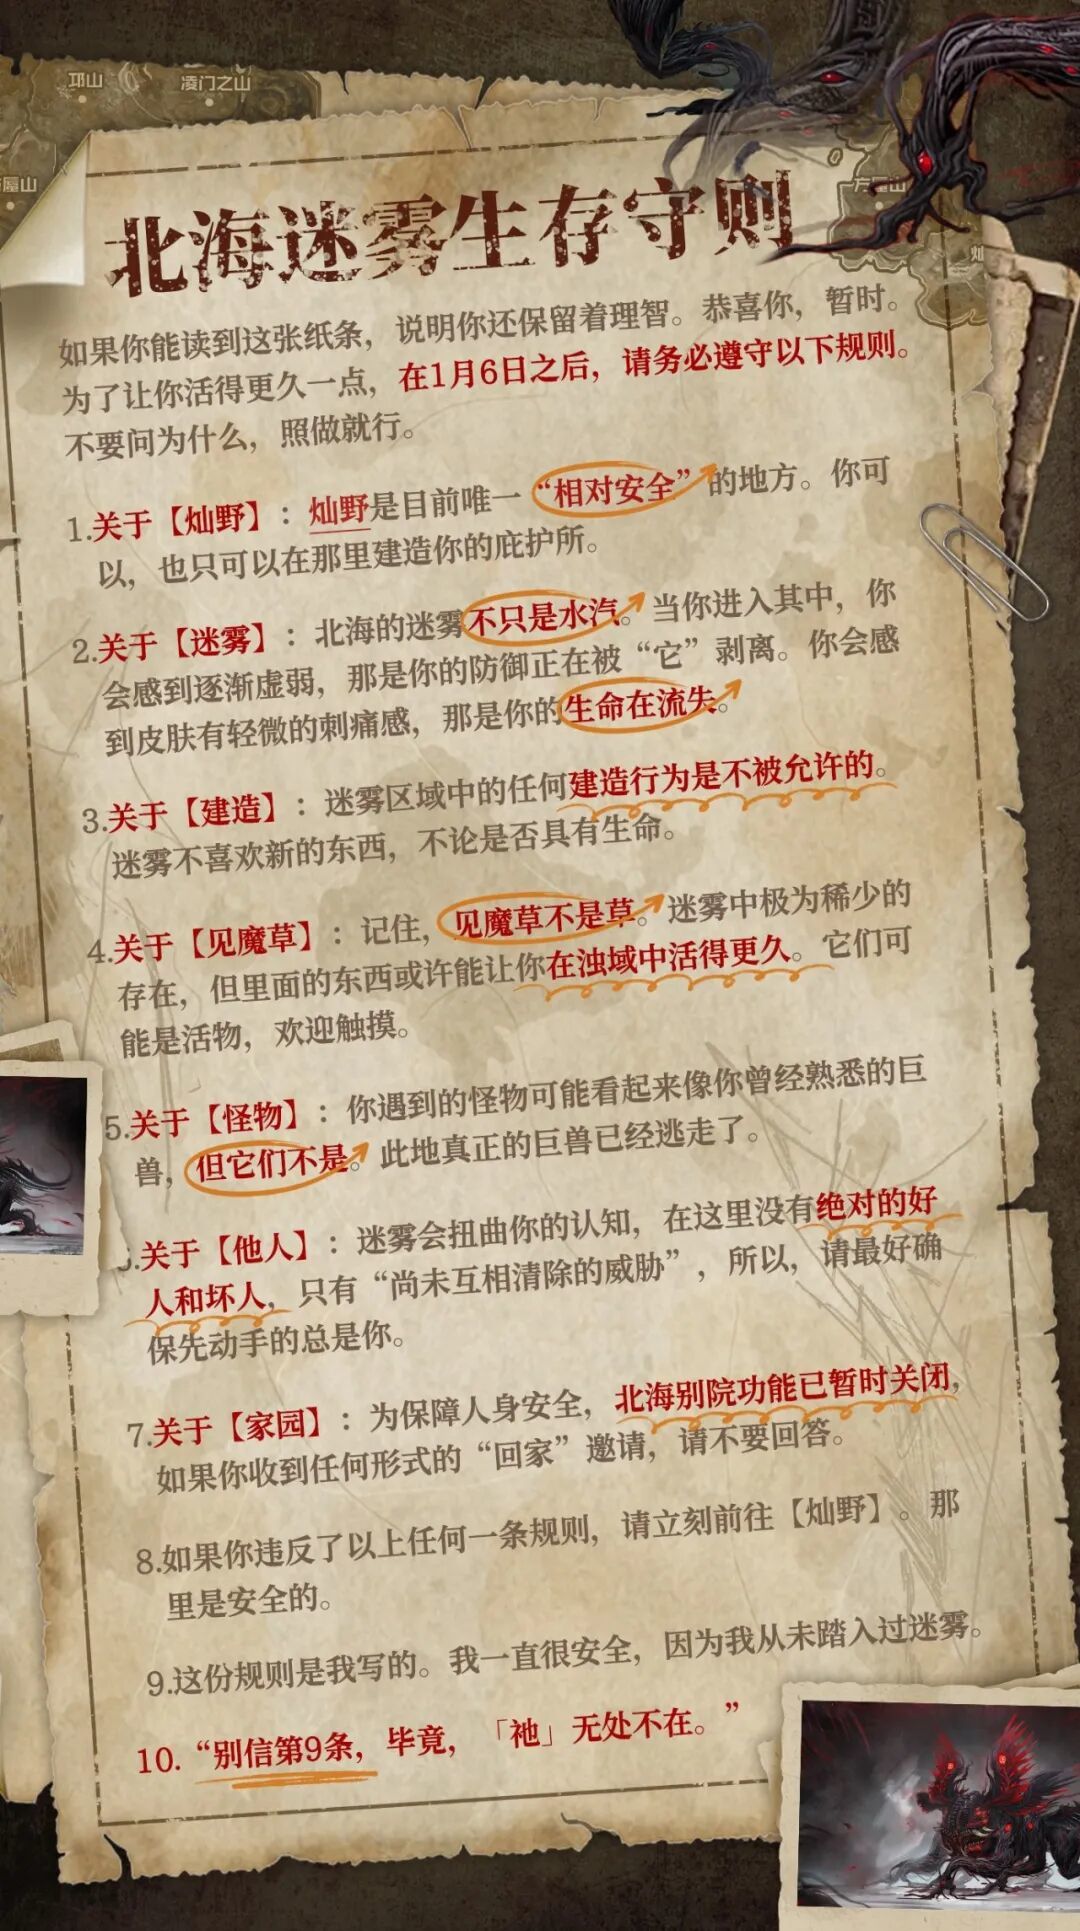 邛山
凌门之山
屋山
方屋山
灿
北海迷雾生存守则
如果你能读到这张纸条，说明你还保留着理智。恭喜你，暂时。
为了让你活得更久一点，在1月6日之后，请务必遵守以下规则。
不要问为什么，照做就行。
1.关于【灿野】：灿野是目前唯一“相对安全”的地方。你可
以，也只可以在那里建造你的庇护所。
2.关于【迷雾】：北海的迷雾不只是水汽。当你进入其中，你
会感到逐渐虚弱，那是你的防御正在被“它”剥离。你会感
到皮肤有轻微的刺痛感，那是你的生命在流失。
3.关于【建造】：迷雾区域中的任何建造行为是不被允许的。
迷雾不喜欢新的东西，不论是否具有生命。
4.关于【见魔草】：记住，见魔草不是草。迷雾中极为稀少的
存在，但里面的东西或许能让你在浊域中活得更久。它们可
能是活物，欢迎触摸。
5.关于【怪物】：你遇到的怪物可能看起来像你曾经熟悉的巨
兽，但它们不是。此地真正的巨兽已经逃走了。
.关于【他人】：迷雾会扭曲你的认知，在这里没有绝对的好
人和坏人，只有“尚未互相清除的威胁”，所以，请最好确
保先动手的总是你。
7.关于【家园】：为保障人身安全，北海别院功能已暂时关闭，
如果你收到任何形式的“回家”邀请，请不要回答。
8.如果你违反了以上任何一条规则，请立刻前往【灿野】。那
里是安全的。
9.这份规则是我写的。我一直很安全，因为我从未踏入过迷雾。
10.“别信第9条，毕竟，「祂」无处不在。”